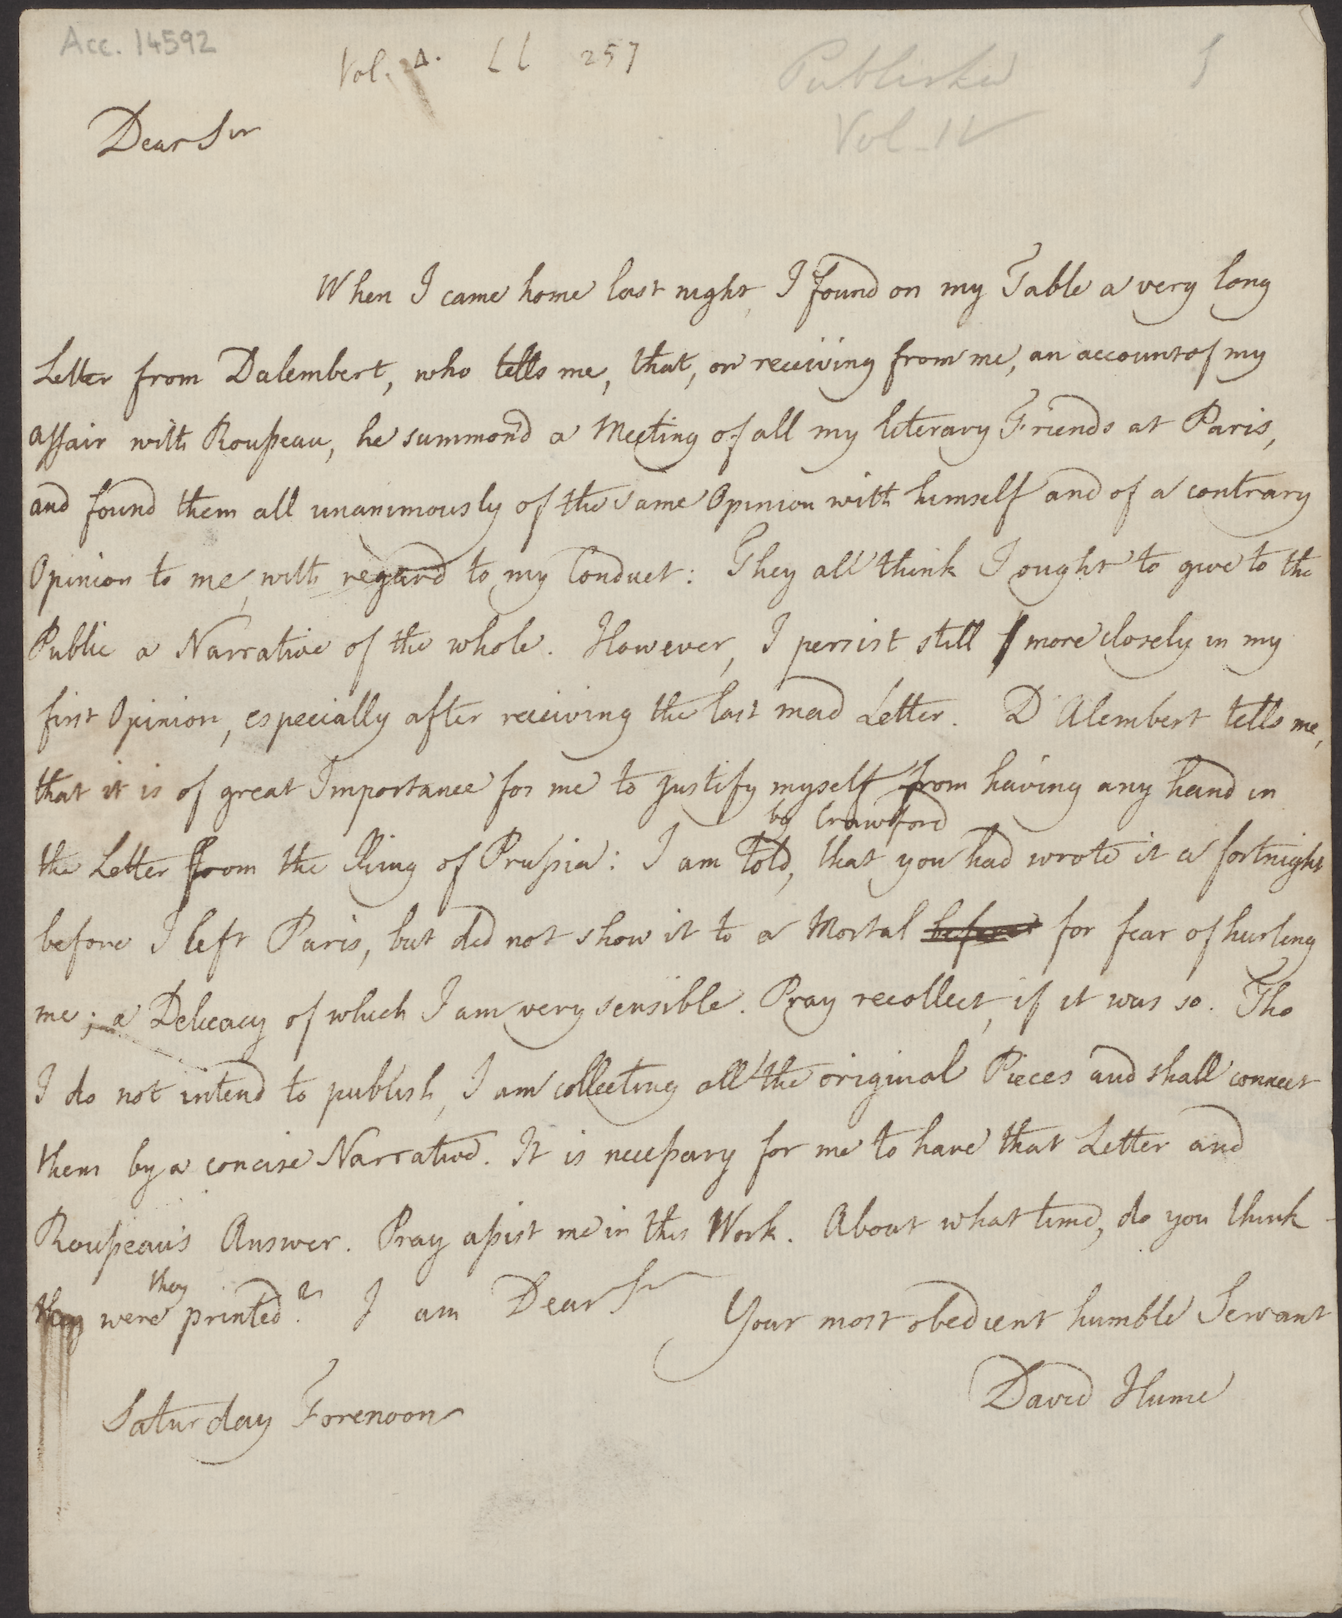 Acc. 14592
Vol. 4. LL 257
Published
Vol. IV
Dear Sir
When I came home last night, I found on my Table a very long
Letter from Dalembert, who tells me, that, on receiving from me, an account of my
affair with Rousseau, he summon'd a Meeting of all my literary Friends at Paris,
and found them all unanimously of the same Opinion with himself and of a contrary
Opinion to me, with regard to my Conduct: They all think I ought to give to the
Public a Narrative of the whole. However, I persist still more closely in my
first Opinion, especially after receiving the last mad Letter. D'Alembert tells me,
that it is of great Importance for me to justify myself from having any hand in
by Crawford
the Letter from the King of Prussia: I am told, that you had wrote it a fortnight
before I left Paris, but did not show it to a Mortal before for fear of hurting
me; a Delicacy of which I am very sensible. Pray recollect, if it was so. Tho
I do not intend to publish, I am collecting all the original Pieces and shall connect
them by a concise Narrative. It is necessary for me to have that Letter and
Rousseau's Answer. Pray assist me in this Work. About what time, do you think
they
they were printed? I am Dear Sir
Your most obedient humble Servant
David Hume
Saturday Forenoon